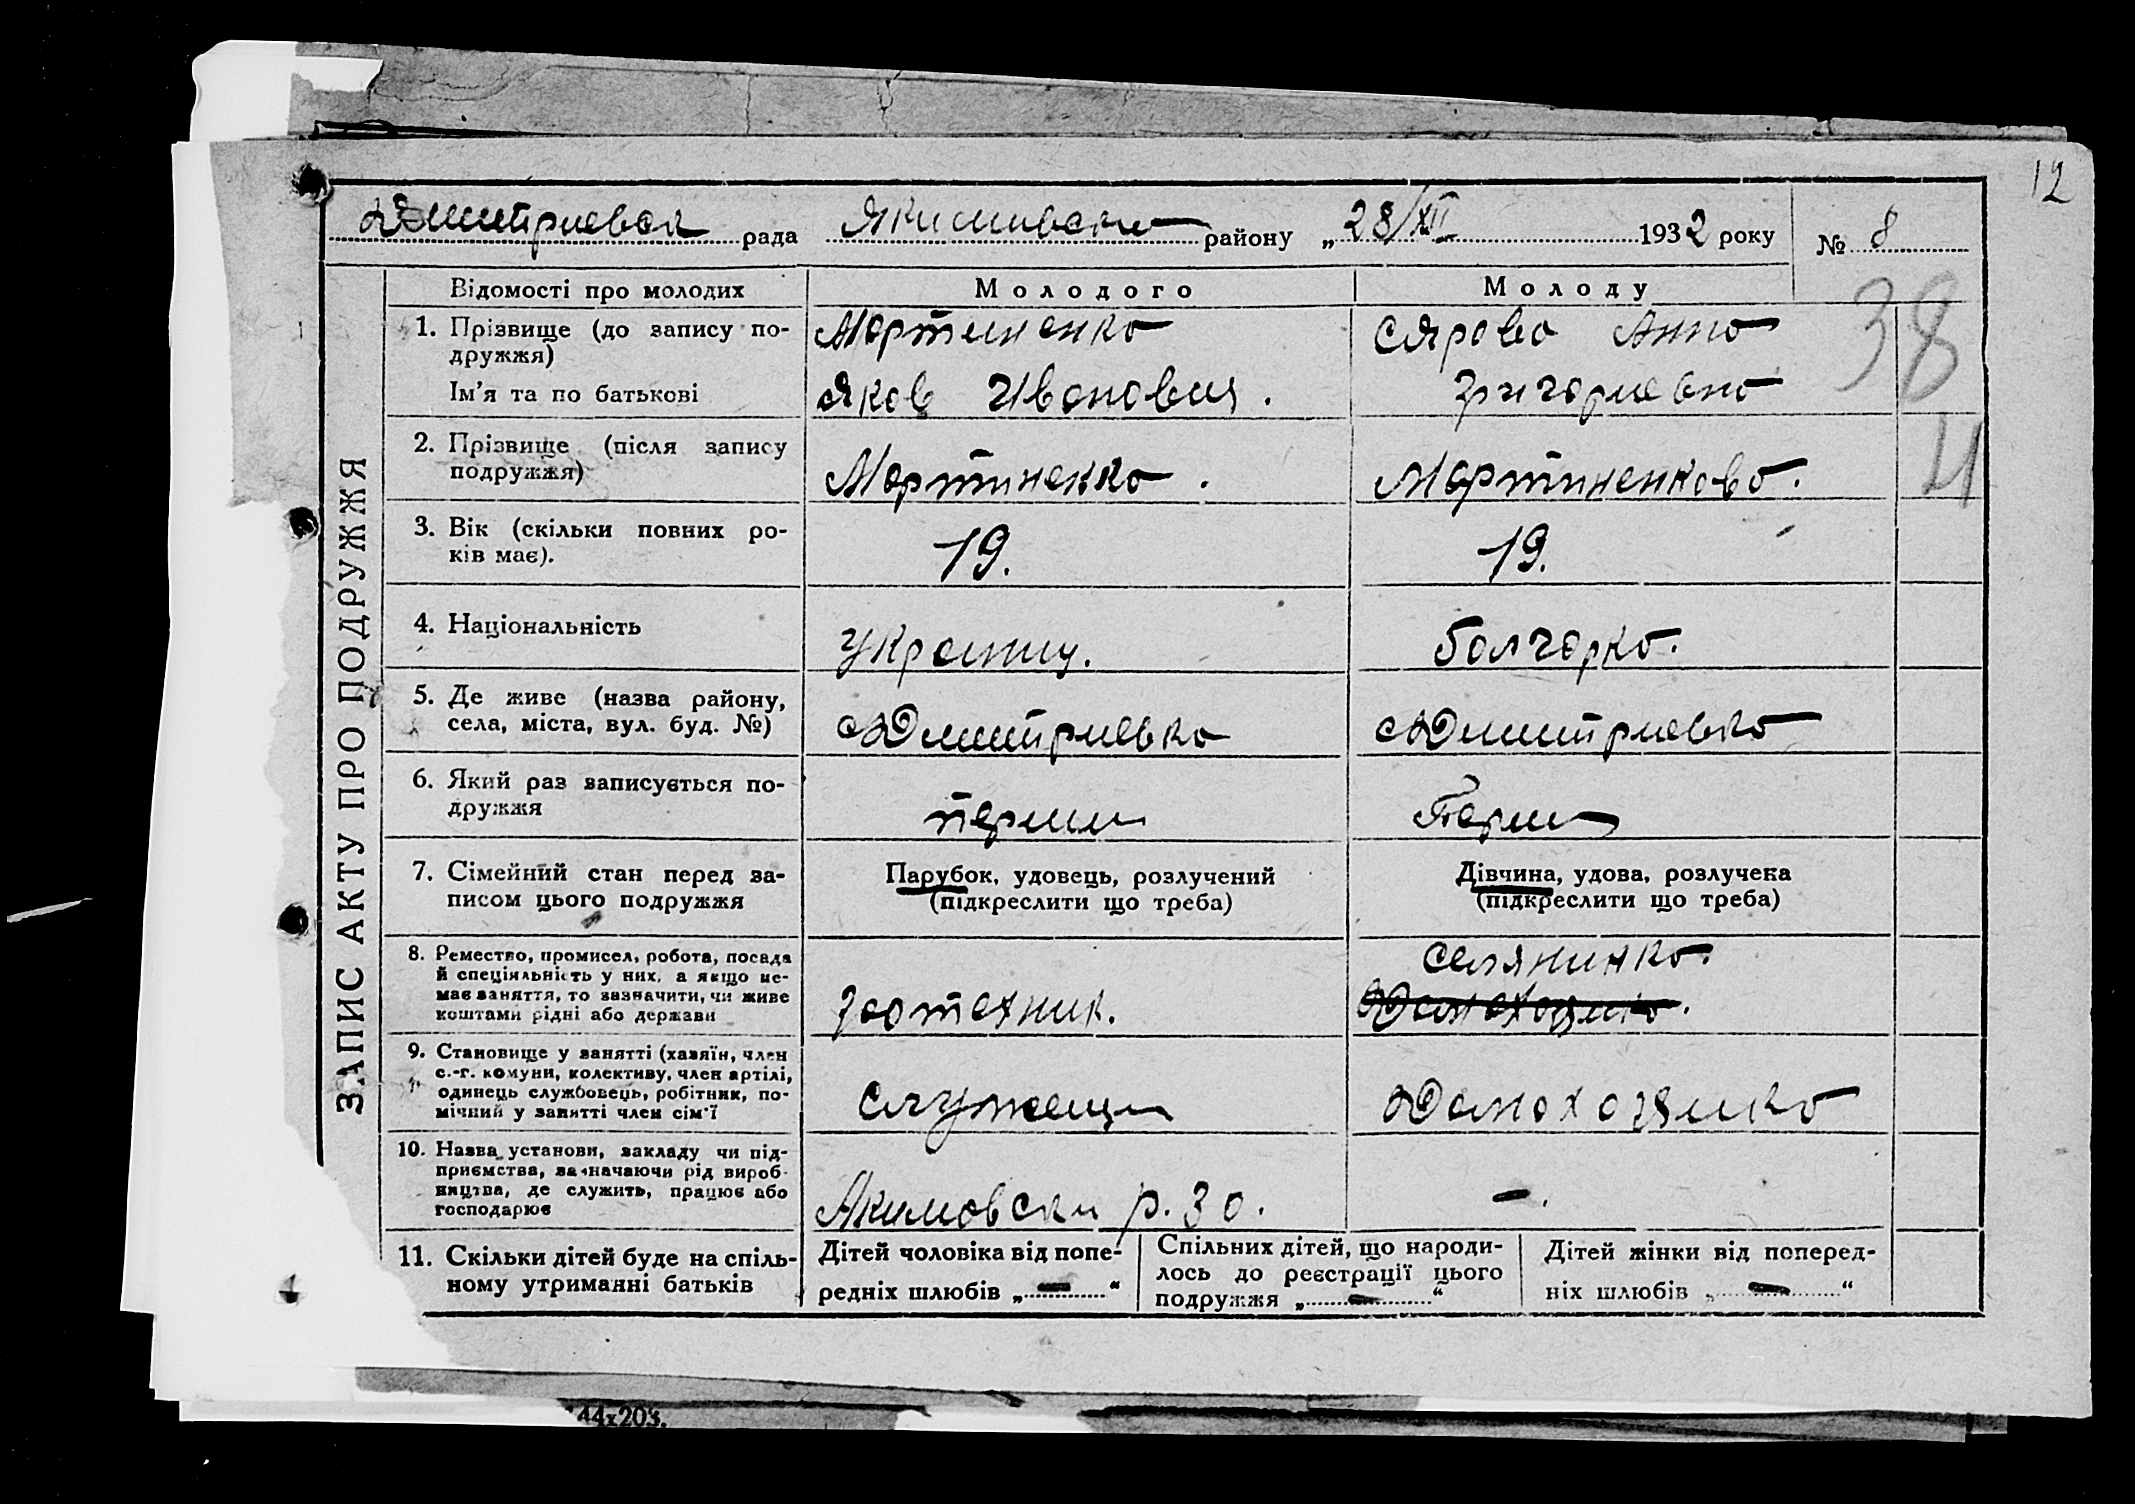 12
Дмитриевск рада Якимивски району „28/XII 1932 року № 8
ЗАПИС АКТУ ПРО ПОДРУЖЖЯ
Відомості про молодих
Молодого
Молоду
38
1. Прізвище (до запису по-
дружжя)
Ім'я та по батькові
Мартиненко
Яков Иванович.
Ярова Анна
Григориевна
2. Прізвище (після запису
подружжя)
Мартиненко.
Мартиненкова.
3. Вік (скільки повних ро-
ків має).
19.
19.
4. Національність
Украинц.
болгарка.
5. Де живе (назва району,
села, міста, вул. буд. №)
Дмитриевка
Дмитриевка
6. Який раз записується по-
дружжя
перши
Перши
7. Сімейний стан перед за-
писом цього подружжя
Парубок, удовець, розлучений
(підкреслити що треба)
Дівчина, удова, розлучена
(підкреслити що треба)
8. Ремество, промисел, робота, посада
й спеціяльність у них, а якщо не-
має заняття, то зазначити, чи живе
коштами рідні або держави
Зоотехник.
Селянинка.
Домохозяика.
9. Становище у занятті (хазяїн, член
с.-г. комуни, колективу, член артілі,
одинець службовець, робітник, по-
мічний у занятті член сім'ї
Служещи
Домохозяика
10. Назва установи, закладу чи під-
приємства, зазначаючи рід вироб-
ництва, де служить, працює або
господарює
Акимовски р. З О.
—.
11. Скільки дітей буде на спіль-
ному утриманні батьків
Дітей чоловіка від попе-
редніх шлюбів „ — “
Спільних дітей, що народи-
лось до реєстрації цього
подружжя „ — “
Дітей жінки від поперед-
ніх шлюбів „ — “
44х203.